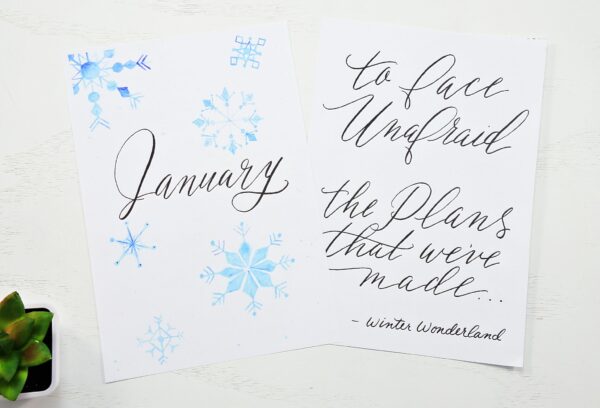 January
to face
Unafraid
the Plans
that we've
made...
- Winter Wonderland